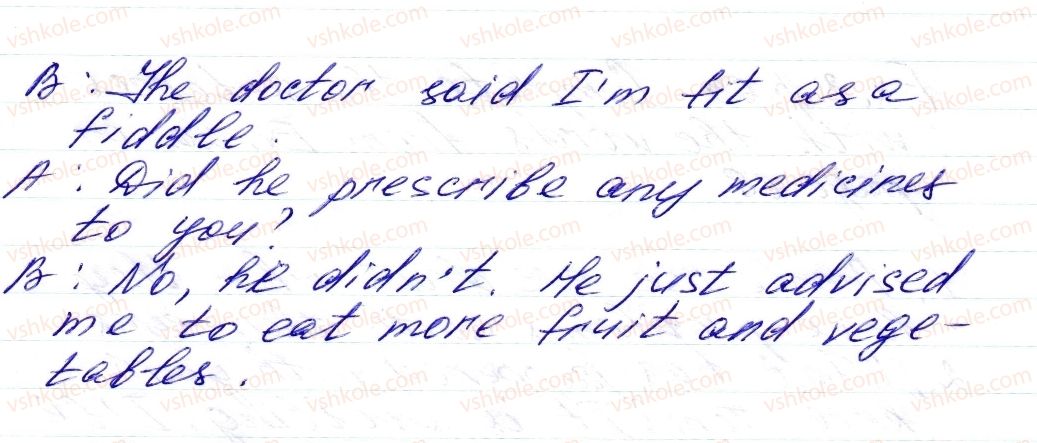 B: The doctor said I'm fit as a
fiddle.
A: Did he prescribe any medicines
to you?
B: No, he didn't. He just advised
me to eat more fruit and vege-
tables.